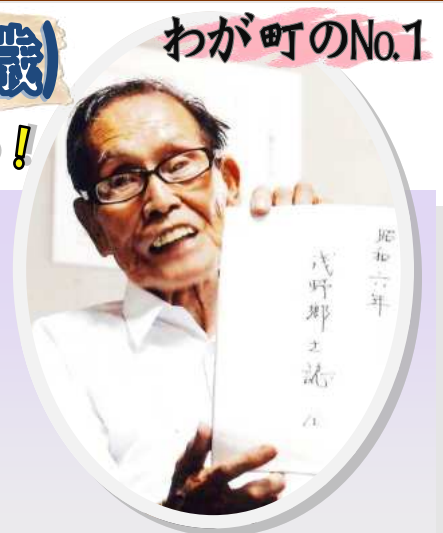 わが町のNo.1
歳)
!
昭和六年
浅野郷土誌